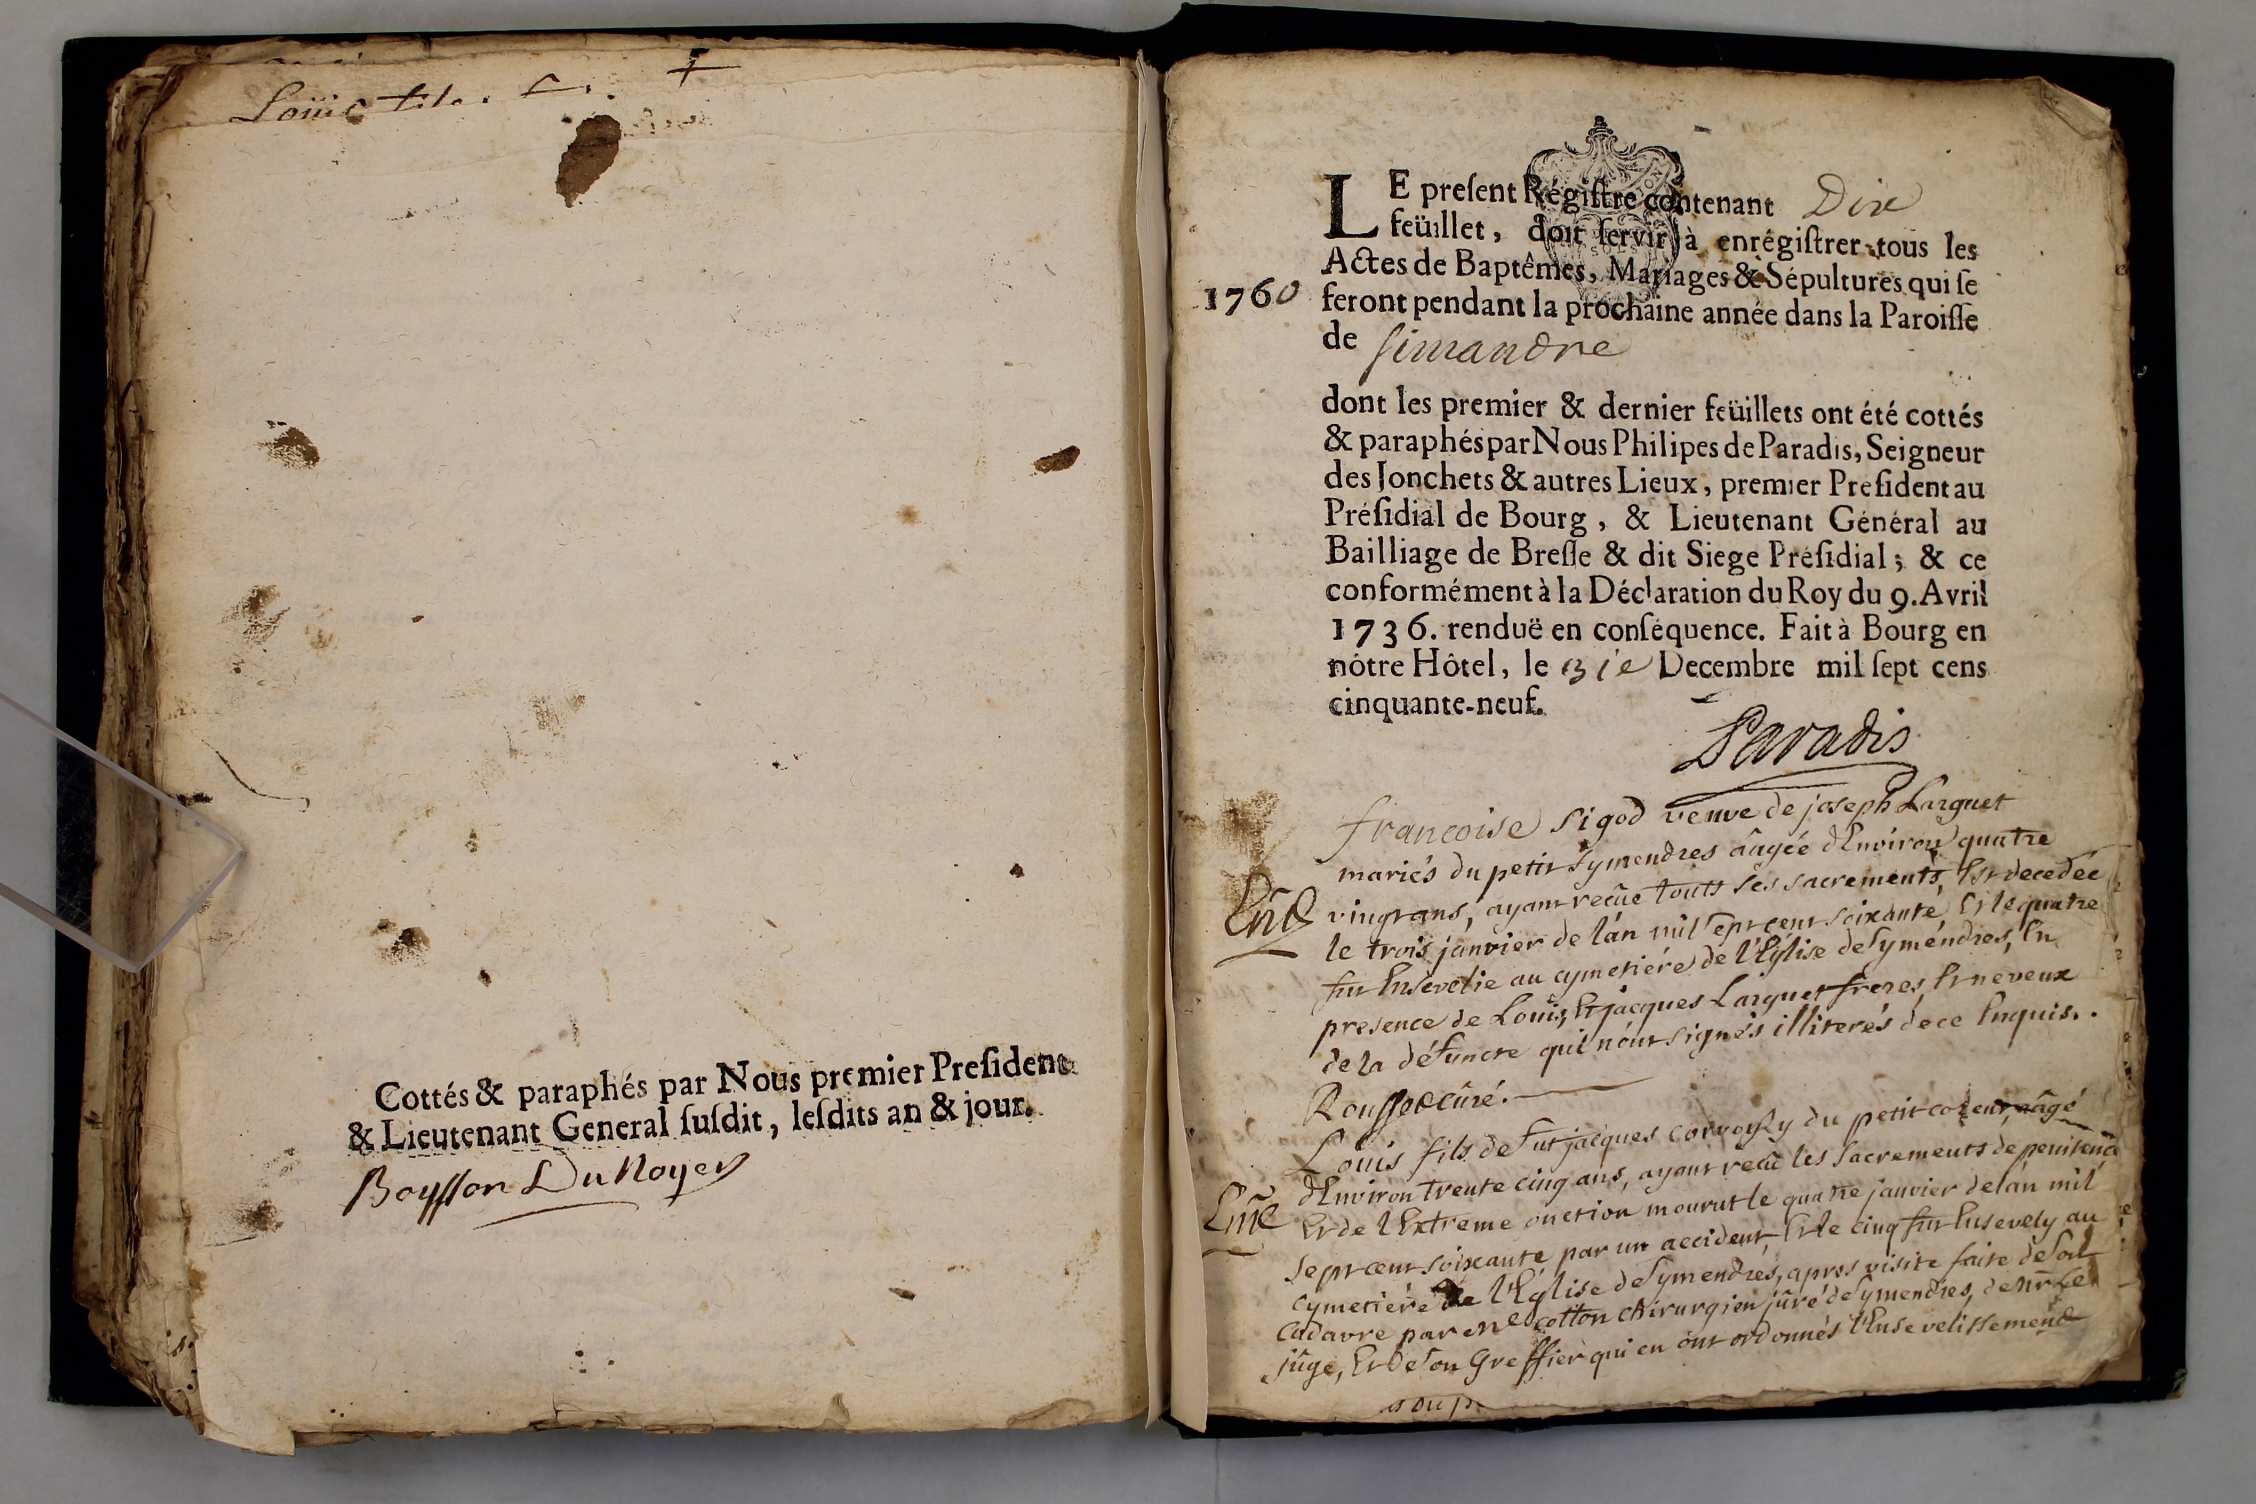 Louis
Cottés & paraphés par Nous premier Preſident
& Lieutenant General ſuſdit, leſdits an & jour.
Boysson Du Noyer
LE preſent Régiſtre contenant Dix
feüillet, doit ſervir à enrégiſtrer tous les
Actes de Baptêmes, Mariages & Sépultures qui ſe
1760 feront pendant la prochaine année dans la Paroiſſe
de Simandre
dont les premier & dernier feüillets ont été cottés
& paraphés par Nous Philipes de Paradis, Seigneur
des Jonchets & autres Lieux, premier Preſident au
Préſidial de Bourg, & Lieutenant Général au
Bailliage de Breſſe & dit Siege Préſidial; & ce
conformément à la Déclaration du Roy du 9. Avril
1736. renduë en conſéquence. Fait à Bourg en
nôtre Hôtel, le Decembre mil ſept cens
cinquante-neuf.
Paradis
françoise Sigod veuve de joseph Larguet
mariés du petit Symendres âugée dEnviron quatre
vingt ans, ayant reçûe touts ses sacrements, Est decedée
le trois janvier de lán mil sept cent soixante, Et le quatre
fut Ensevelie au cymetiére de l'Eglise de Syméndres, En
presence de Louis, Et jacques Larguet freres, Et neveux
de la défuncte qui n'ont signés illiterés de ce Enquis.
Rousset cûré.
Louis fils de fut jacques du petit âgé
dEnviron trente cinq ans, ayant reçû les Sacrements de penitence
Et de l'Extreme onction mourut le quatre janvier de lán mil
Sept cent soixante par un accident, Et le cinq fut Ensevely au
cymetiére de l'Eglise de Symendres, apres visite faite de
Cadavre par me Cotton chirurgien juré de Symendres, de
jûge, Et de son Greffier qui en ont ordonnés l'Ensevelissement